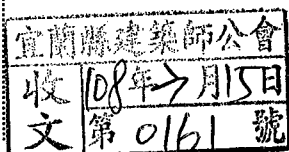 宜蘭縣建築師公會
收文
108年7月15日
第0161號